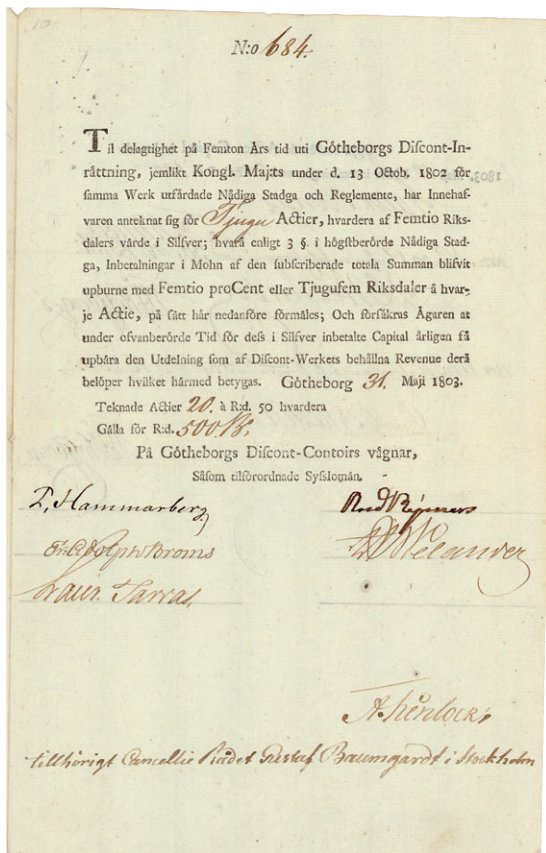 10
N:o 684.
Til delagtighet på Femton Års tid uti Götheborgs Discont-In-
råttning, jemlikt Kongl. Maj:ts under d. 13 Octob. 1802 för
samma Werk utfårdade Nådiga Stadga och Reglemente, har Innehaf-
varen anteknat sig för Tjugu Actier, hvardera af Femtio Riks-
dalers vårde i Silfver; hvarå enligt 3 §. i högstberörde Nådiga Stad-
ga, Inbetalningar i Mohn af den subscriberade totala Summan blifvit
upburne med Femtio proCent eller Tjugufem Riksdaler å hvar-
je Actie, på sått hår nedanföre förmåles; Och försåkras Ågaren at
under ofvanberörde Tid för dess i Silfver inbetalte Capital årligen få
upbåra den Utdelning som af Discont-Werkets behållna Revenue derå
belöper hvilket hårmed betygas. Götheborg 31. Maji 1803.
Teknade Actier 20. à R:d. 50 hvardera
Gålla för R:d. 500.
På Götheborgs Discont-Contoirs vågnar,
Såsom tilförordnade Sysslomån.
Hammarberg
Broms
Welander
Laur. Tarras.
tillhörigt Cancellie Rådet Gustaf Baumgardt i Stockholm